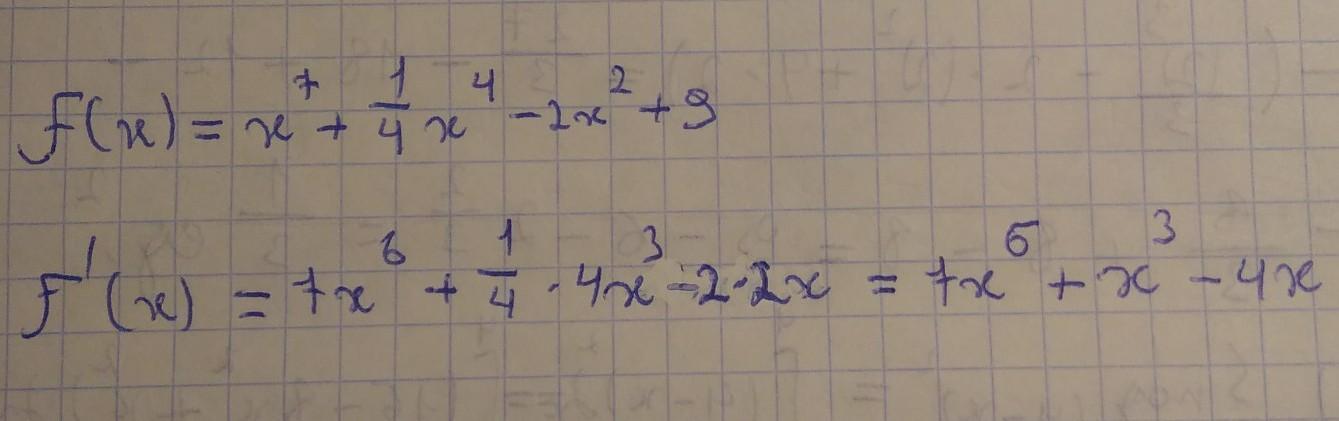 f(x) = x⁷ + 1/4 x⁴ - 2x² + 9
f'(x) = 7x⁶ + 1/4 · 4x³ - 2·2x = 7x⁶ + x³ - 4x